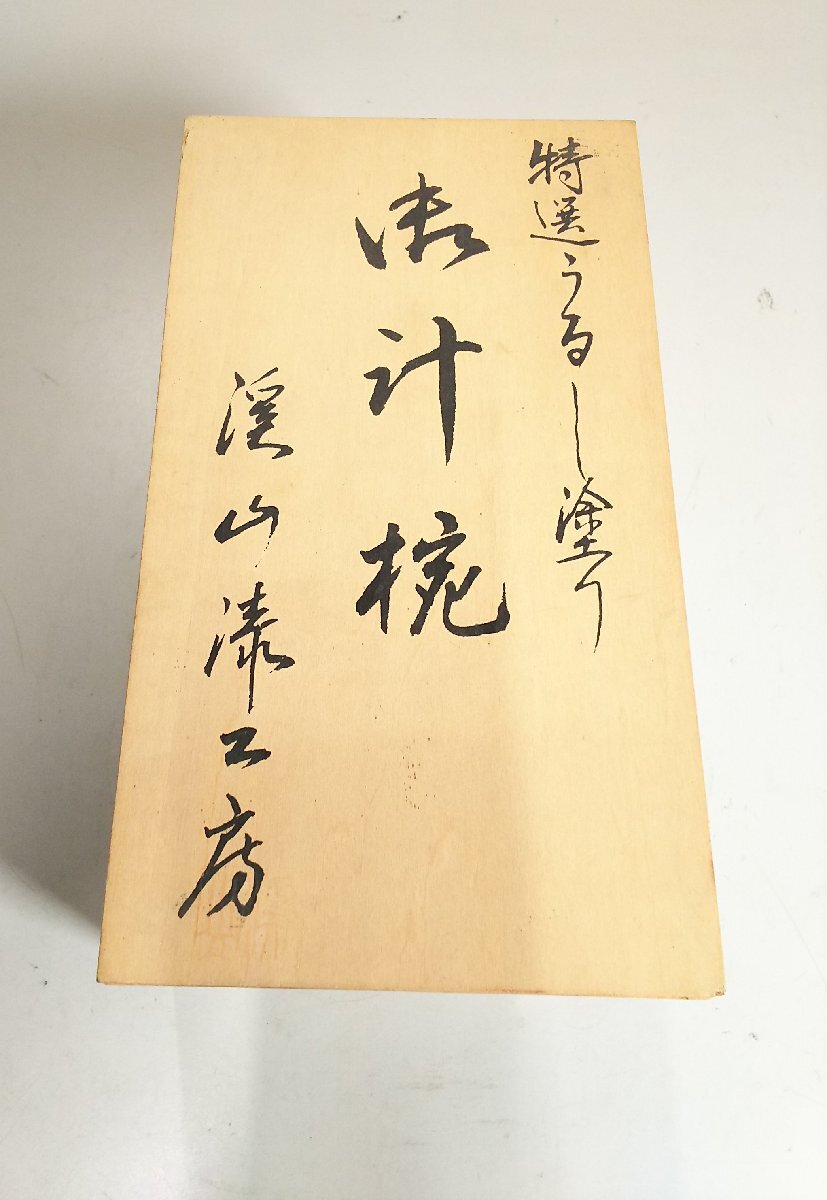 特選うるし塗り
御汁椀
渓山漆工房